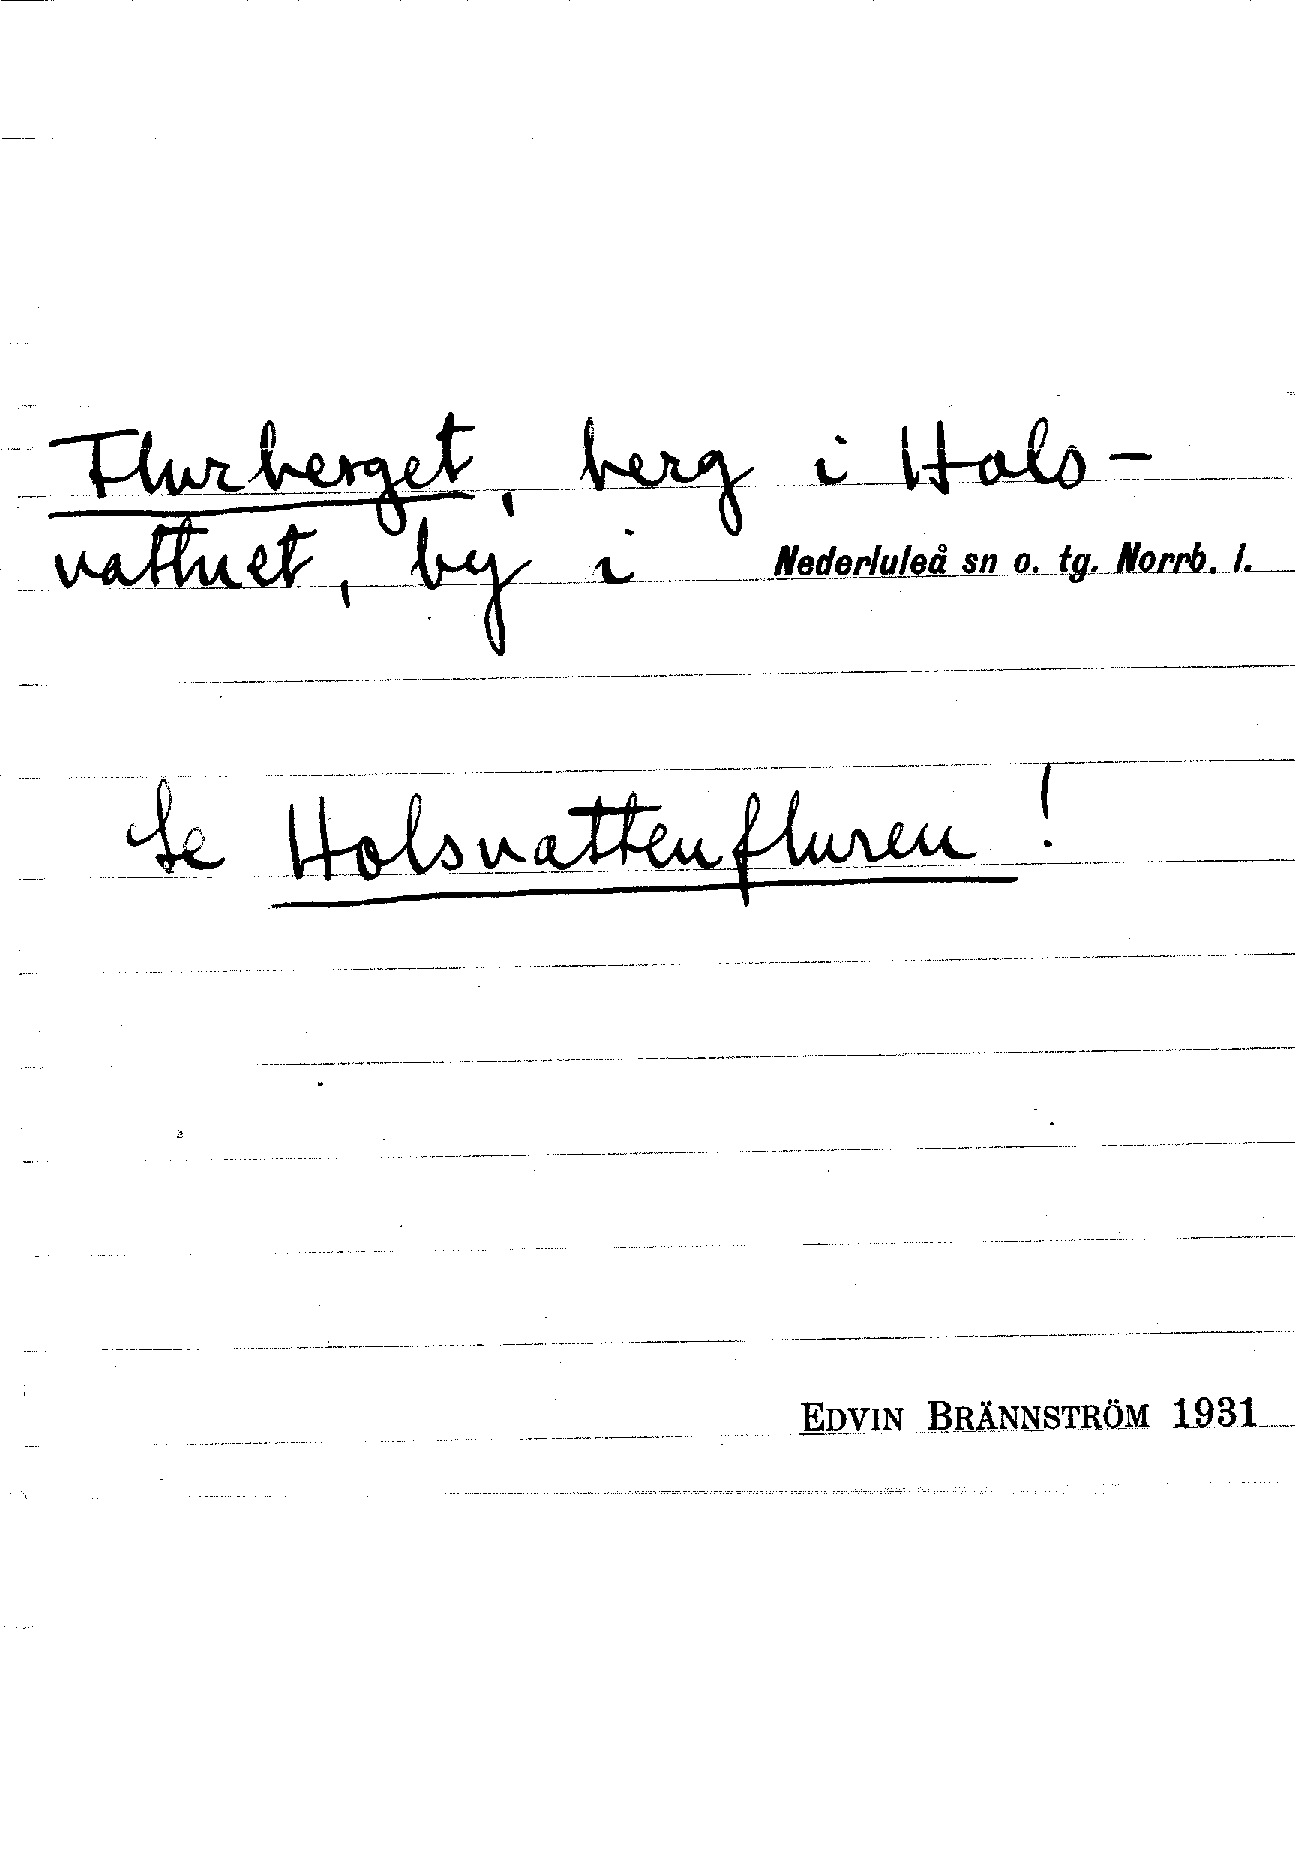 Flurberget, berg i Hols-
vattnet, by i Nederluleå sn o. tg. Norrb. l.
Se Holsvattenfluren!
EDVIN BRÄNNSTRÖM 1931